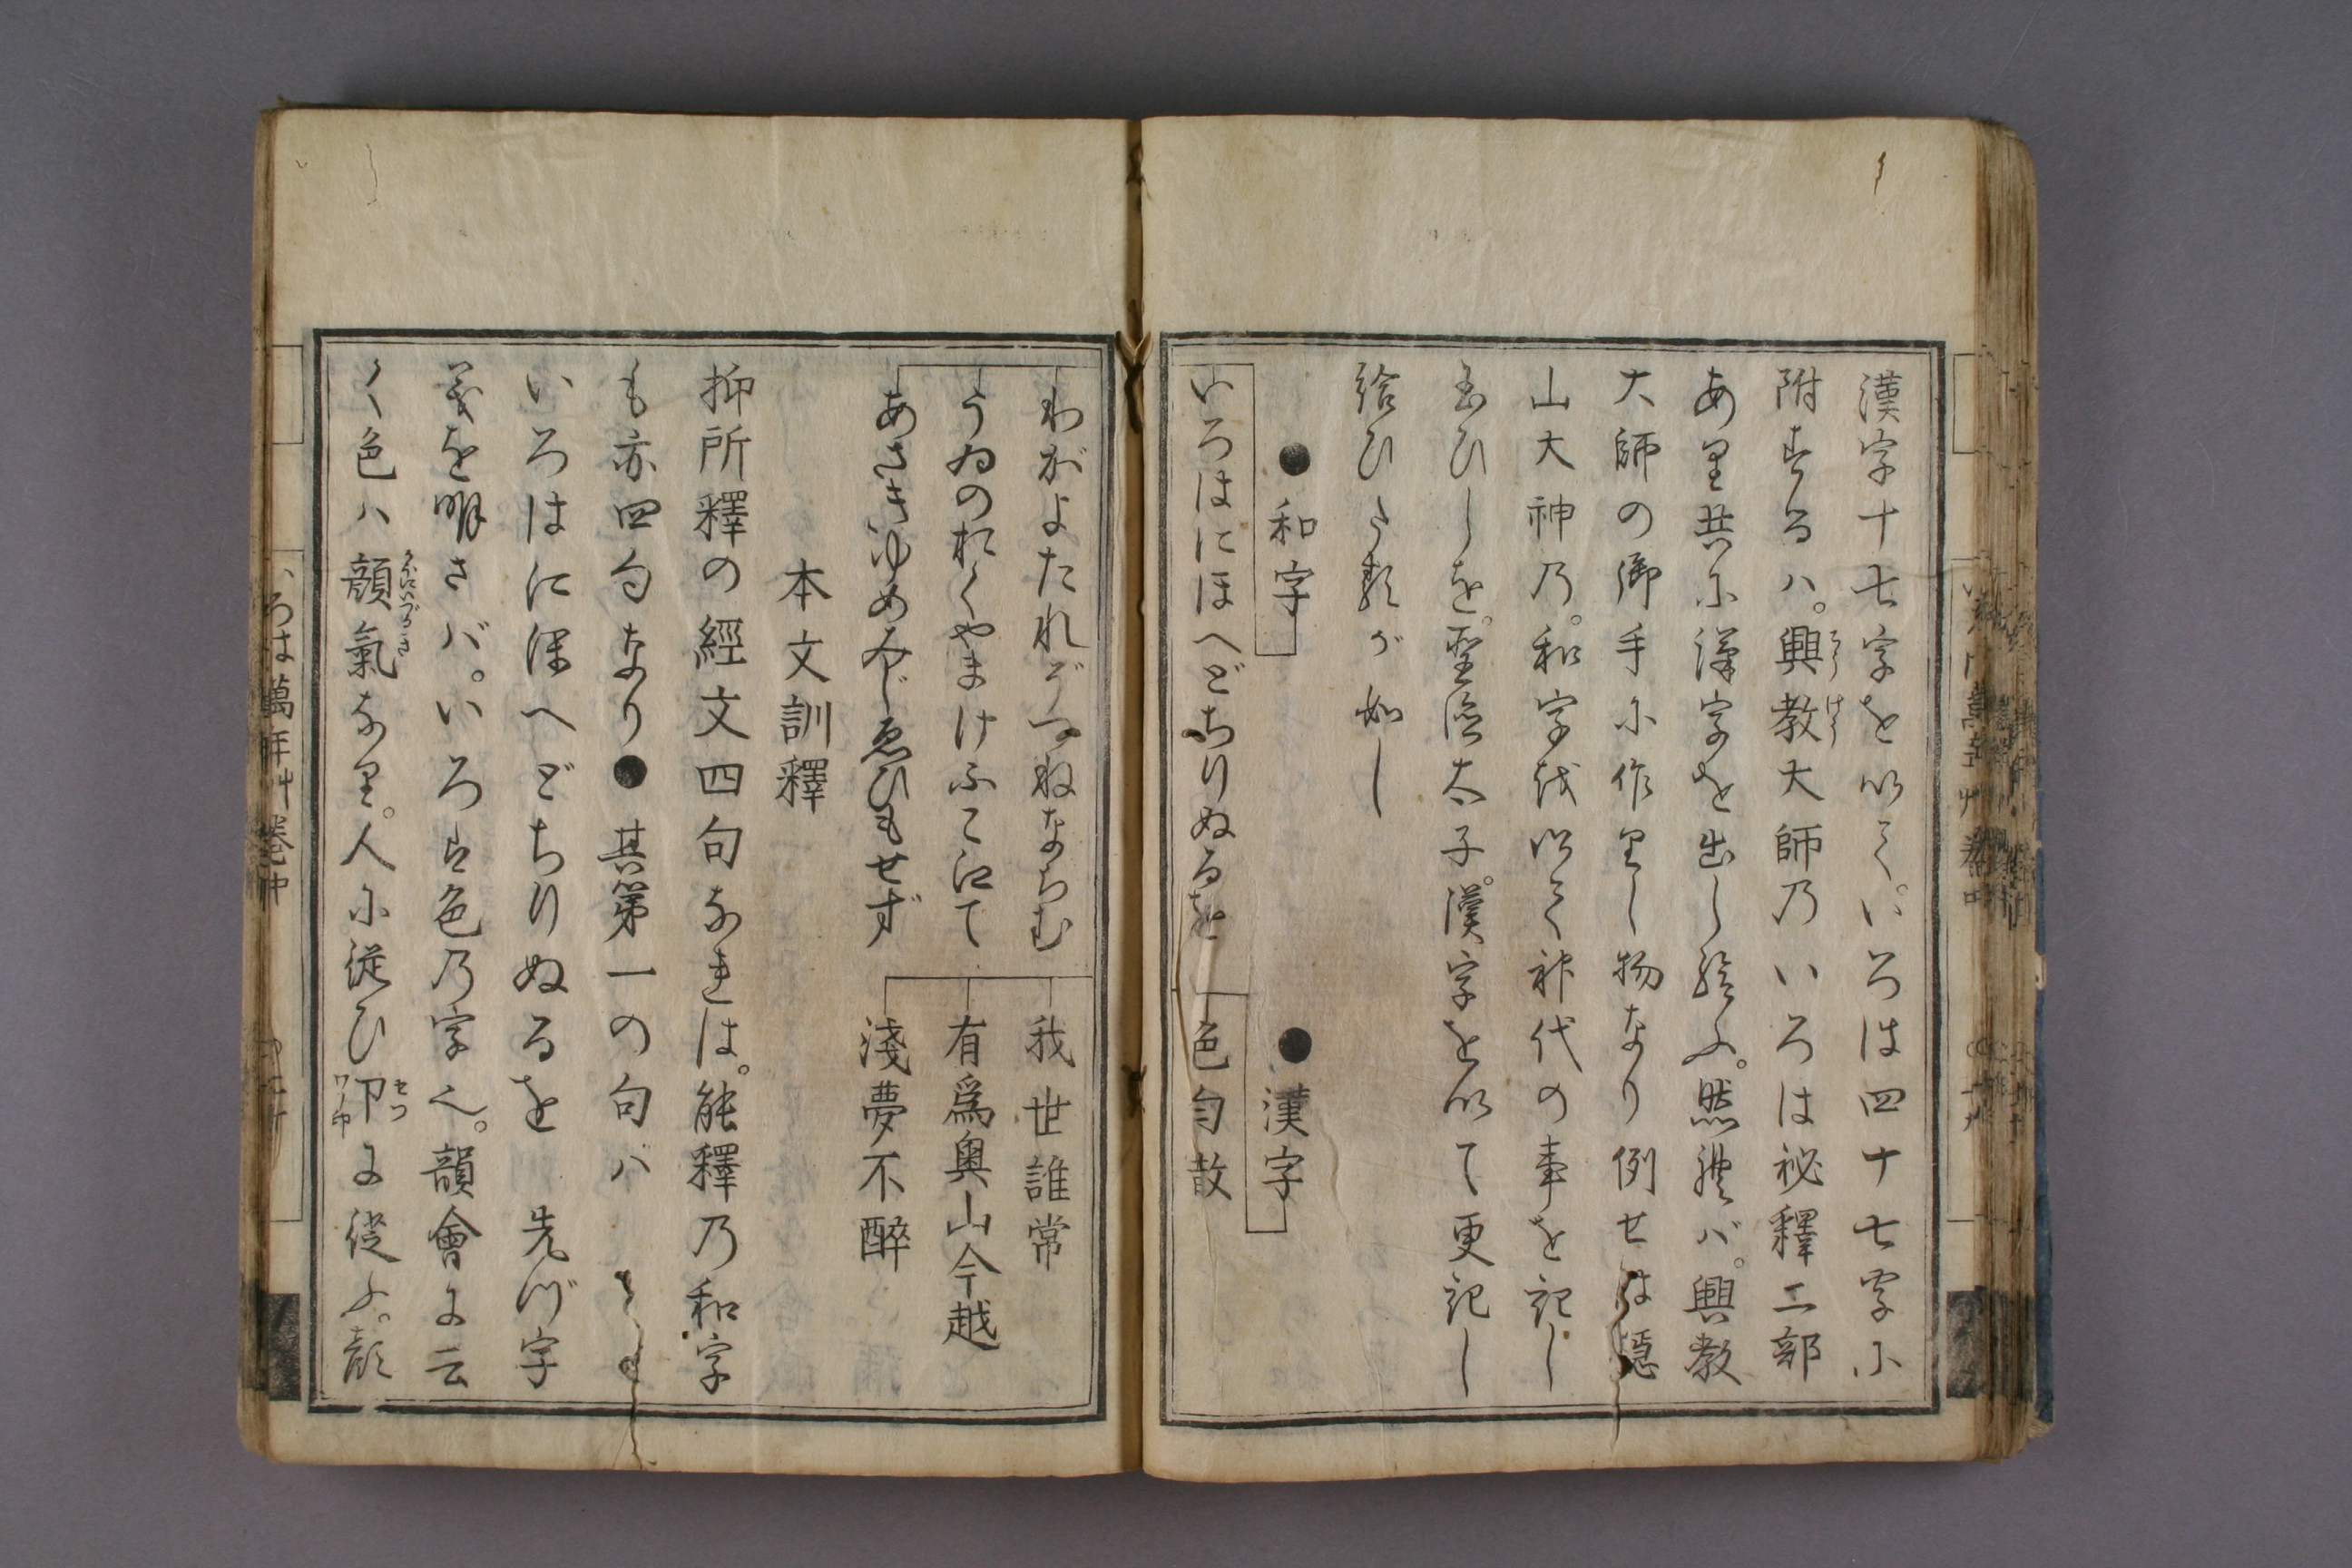 漢字十七字を以て。いろは四十七字に
附するハ。興教大師乃いろは祕釋二部
あり共に漢字を出し給ふ。然れバ。興教
大師の御手に作りし物なり例せは
山大神乃。和字を以て神代の事を記し
玉ひしを。聖徳太子。漢字を以て更記し
給ひたるが如し
●和字
●漢字
いろはにほへどちりぬるを
色匂散
わがよたれぞつねならむ
我世誰常
うゐのおくやまけふこえて
有爲奧山今越
あさきゆめみじゑひもせず
淺夢不醉
本文訓釋
抑所釋の經文四句なれは。能釋乃和字
も亦四句なり●其第一の句ハ
いろはにほへどちりぬるを 先づ字
義を明さバ。いろは色乃字也。韻會に云
く色ハ顏氣なり。人に從ひ卩に從ふ。顏
かほいづき
せつ
いろは萬年艸 卷中